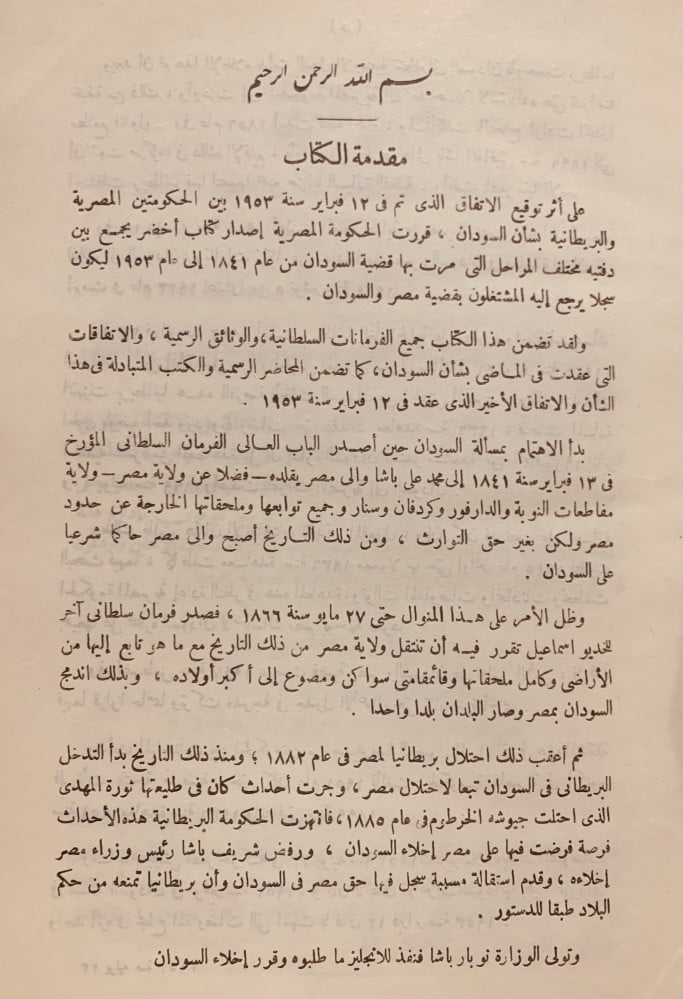 بسم الله الرحمن الرحيم
مقدمة الكتاب
على أثر توقيع الاتفاق الذى تم فى ١٢ فبراير سنة ١٩٥٣ بين الحكومتين المصرية
والبريطانية بشأن السودان ، قررت الحكومة المصرية إصدار كتاب أخضر يجمع بين
دفتيه مختلف المراحل التى مرت بها قضية السودان من عام ١٨٤١ إلى عام ١٩٥٣ ليكون
سجلا يرجع إليه المشتغلون بقضية مصر والسودان .
ولقد تضمن هذا الكتاب جميع الفرمانات السلطانية، والوثائق الرسمية ، والاتفاقات
التى عقدت فى الماضى بشأن السودان، كما تضمن المحاضر الرسمية والكتب المتبادلة فى هذا
الشأن والاتفاق الأخير الذى عقد فى ١٢ فبراير سنة ١٩٥٣ .
بدأ الاهتمام بمسألة السودان حين أصدر الباب العالى الفرمان السلطانى المؤرخ
فى ١٣ فبراير سنة ١٨٤١ إلى محمد على باشا والى مصر يقلده – فضلا عن ولاية مصر – ولاية
مقاطعات النوبة والدارفور وكردفان وسنار وجميع توابعها وملحقاتها الخارجة عن حدود
مصر ولكن بغير حق التوارث ، ومن ذلك التاريخ أصبح والى مصر حاكما شرعيا
على السودان .
وظل الأمر على هذا المنوال حتى ٢٧ مايو سنة ١٨٦٦ ، فصدر فرمان سلطانى آخر
للخديو اسماعيل تقرر فيه أن تنتقل ولاية مصر من ذلك التاريخ مع ما هو تابع إليها من
الأراضى وكامل ملحقاتها وقائمقامتى سواكن ومصوع إلى أكبر أولاده ، وبذلك اندمج
السودان بمصر وصار البلدان بلدا واحدا .
ثم أعقب ذلك احتلال بريطانيا لمصر فى عام ١٨٨٢ ؛ ومنذ ذلك التاريخ بدأ التدخل
البريطانى فى السودان تبعا لاحتلال مصر ، وجرت أحداث كان فى طليعتها ثورة المهدى
الذى احتلت جيوشه الخرطوم فى عام ١٨٨٥، فانتهزت الحكومة البريطانية هذه الأحداث
فرصة فرضت فيها على مصر إخلاء السودان ، ورفض شريف باشا رئيس وزراء مصر
إخلاءه ، وقدم استقالة مسببة سجل فيها حق مصر فى السودان وأن بريطانيا تمنعه من حكم
البلاد طبقا للدستور .
وتولى الوزارة نوبار باشا فنفذ للانجليز ما طلبوه وقرر إخلاء السودان